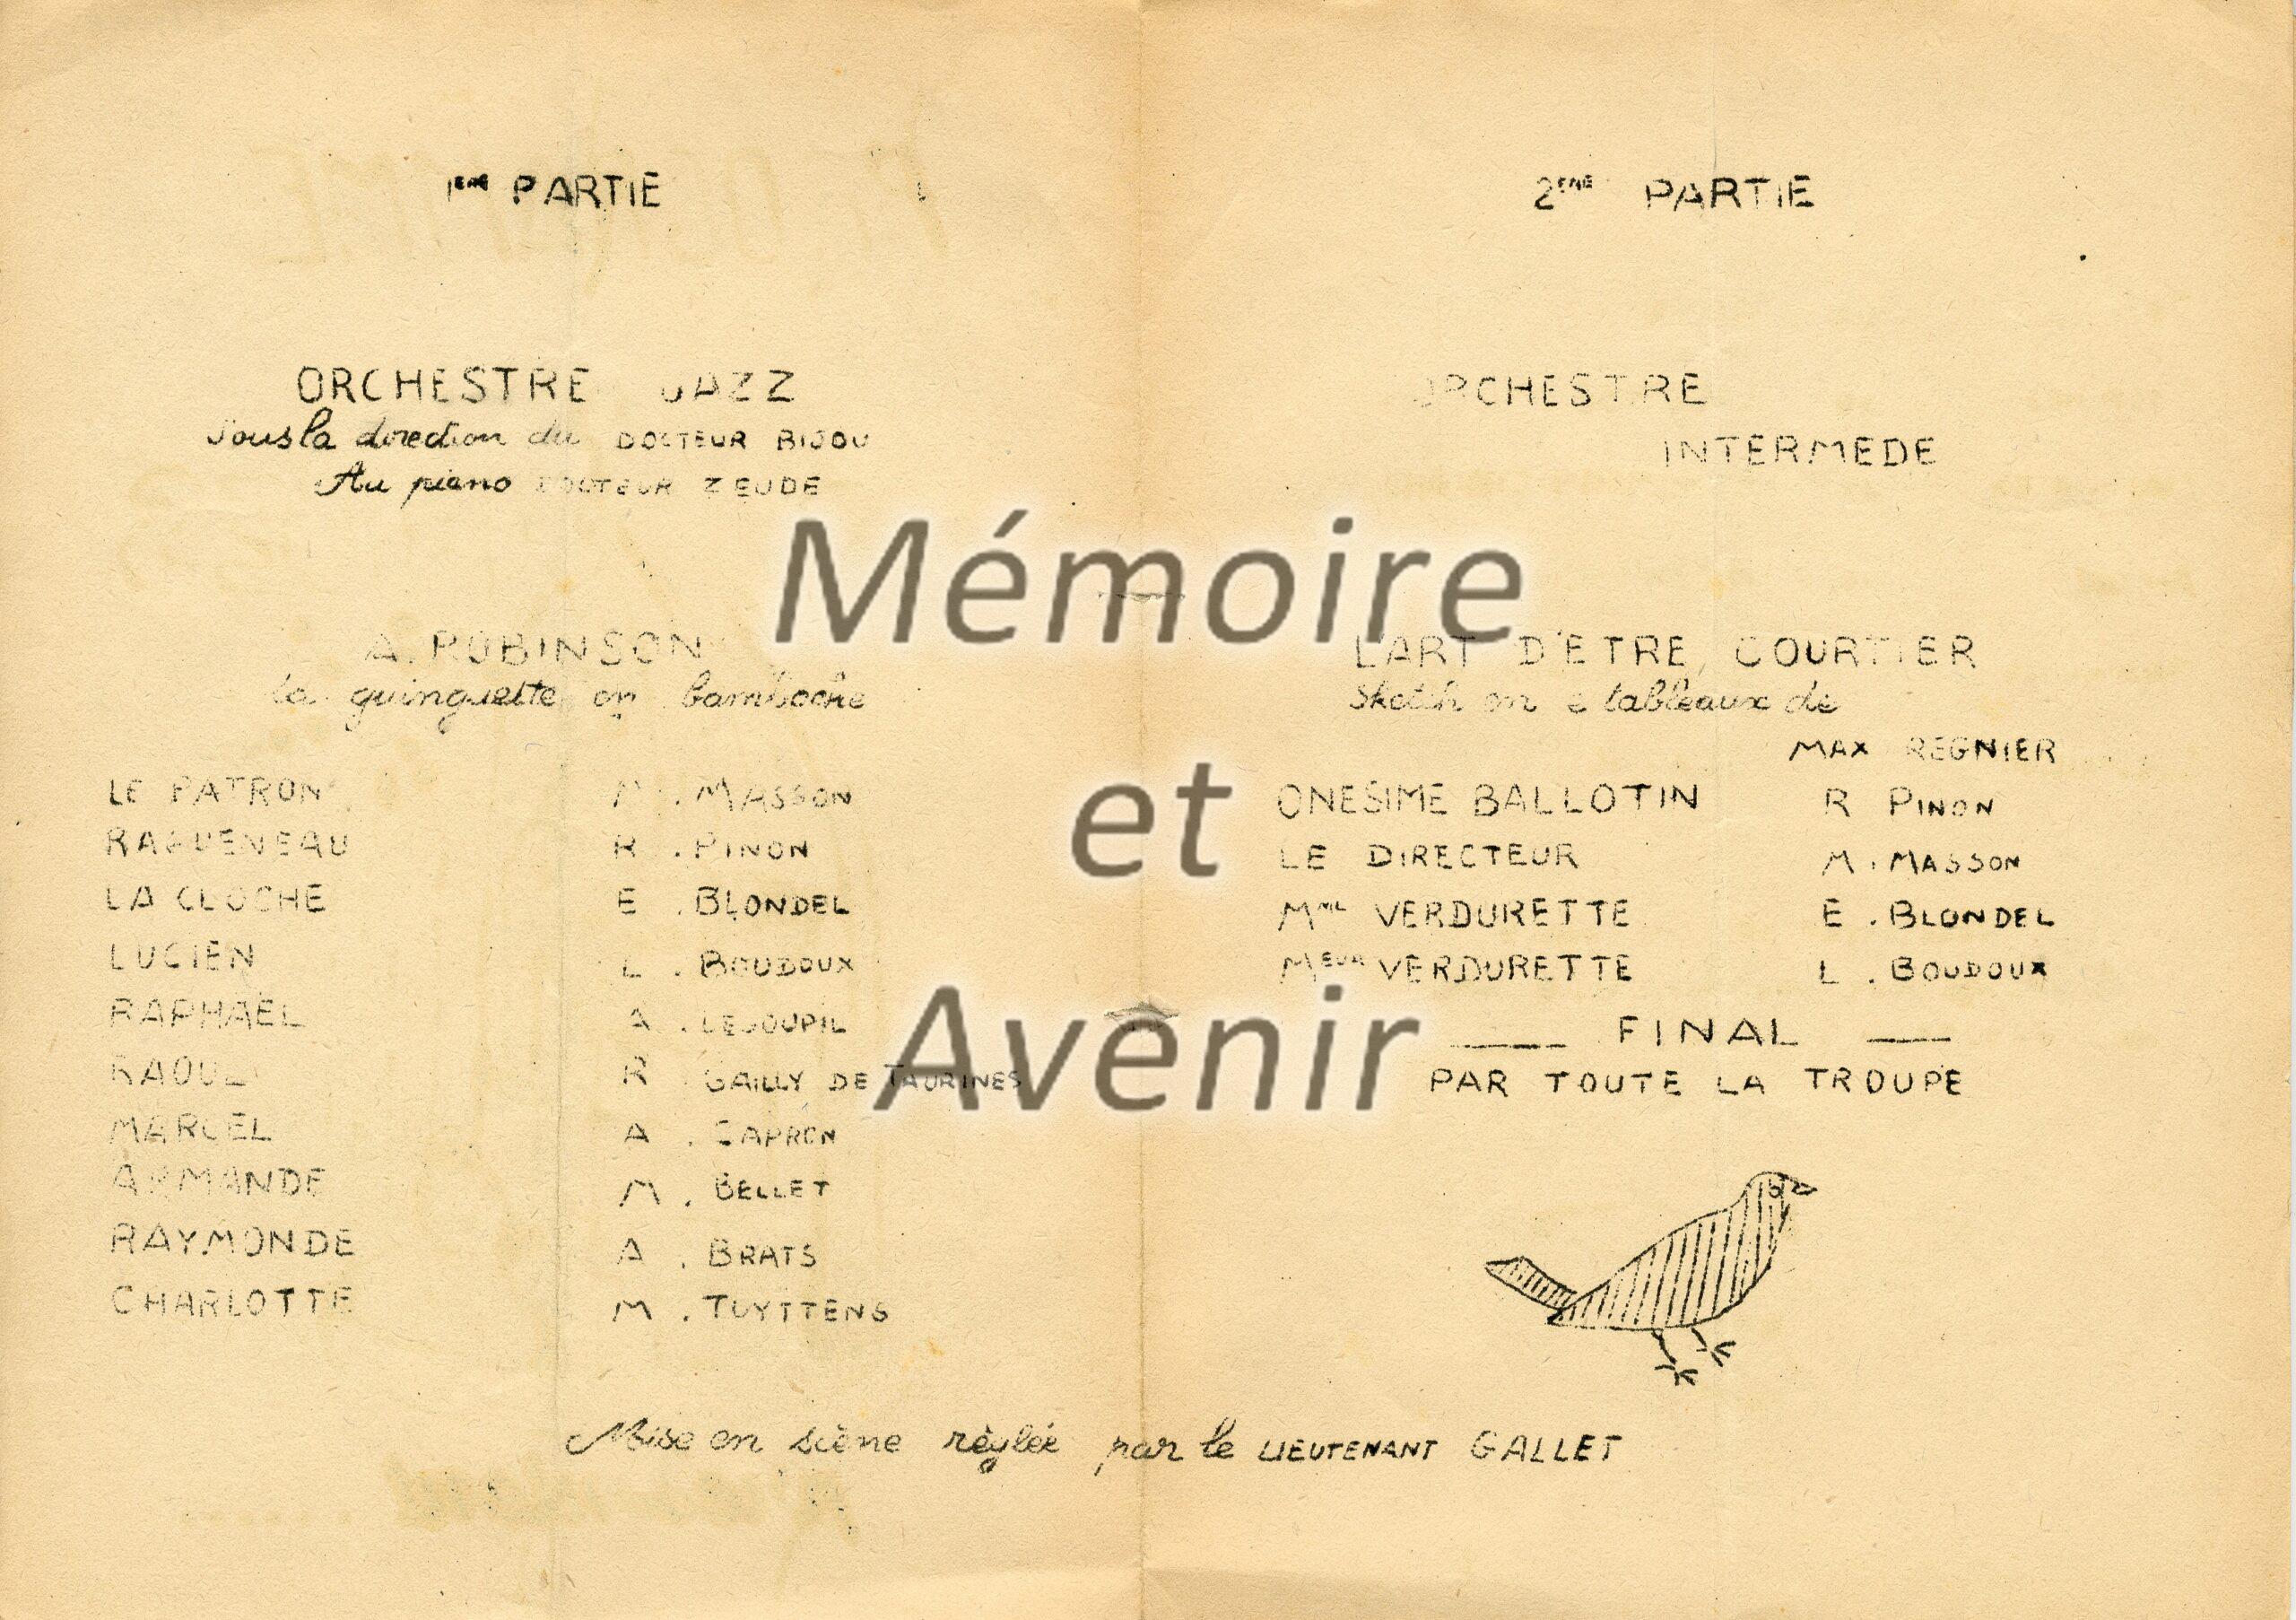 1ERE PARTIE
ORCHESTRE JAZZ
Sous la direction du DOCTEUR BIJOU
Au piano DOCTEUR ZEUDE
A. ROBINSON
la guinguette en bamboche
LE PATRON M. MASSON
RAGUENEAU R. PINON
LA CLOCHE E. BLONDEL
LUCIEN L. BOUDOUX
RAPHAËL A. LEGOUPIL
RAOUL R GAILLY DE TAURINES
MARCEL A. CAPRON
ARMANDE M. BELLET
RAYMONDE A. BRATS
CHARLOTTE M. TUYTTENS
2EME PARTIE
ORCHESTRE
INTERMEDE
L'ART D'ETRE COURTIER
Sketch en 2 tableaux de
MAX REGNIER
ONESIME BALLOTIN R PINON
LE DIRECTEUR M. MASSON
VERDURETTE E. BLONDEL
MEUR VERDURETTE L. BOUDOUX
FINAL
PAR TOUTE LA TROUPE
Mise en scène règlée par le LIEUTENANT GALLET
Mémoire
et
Avenir